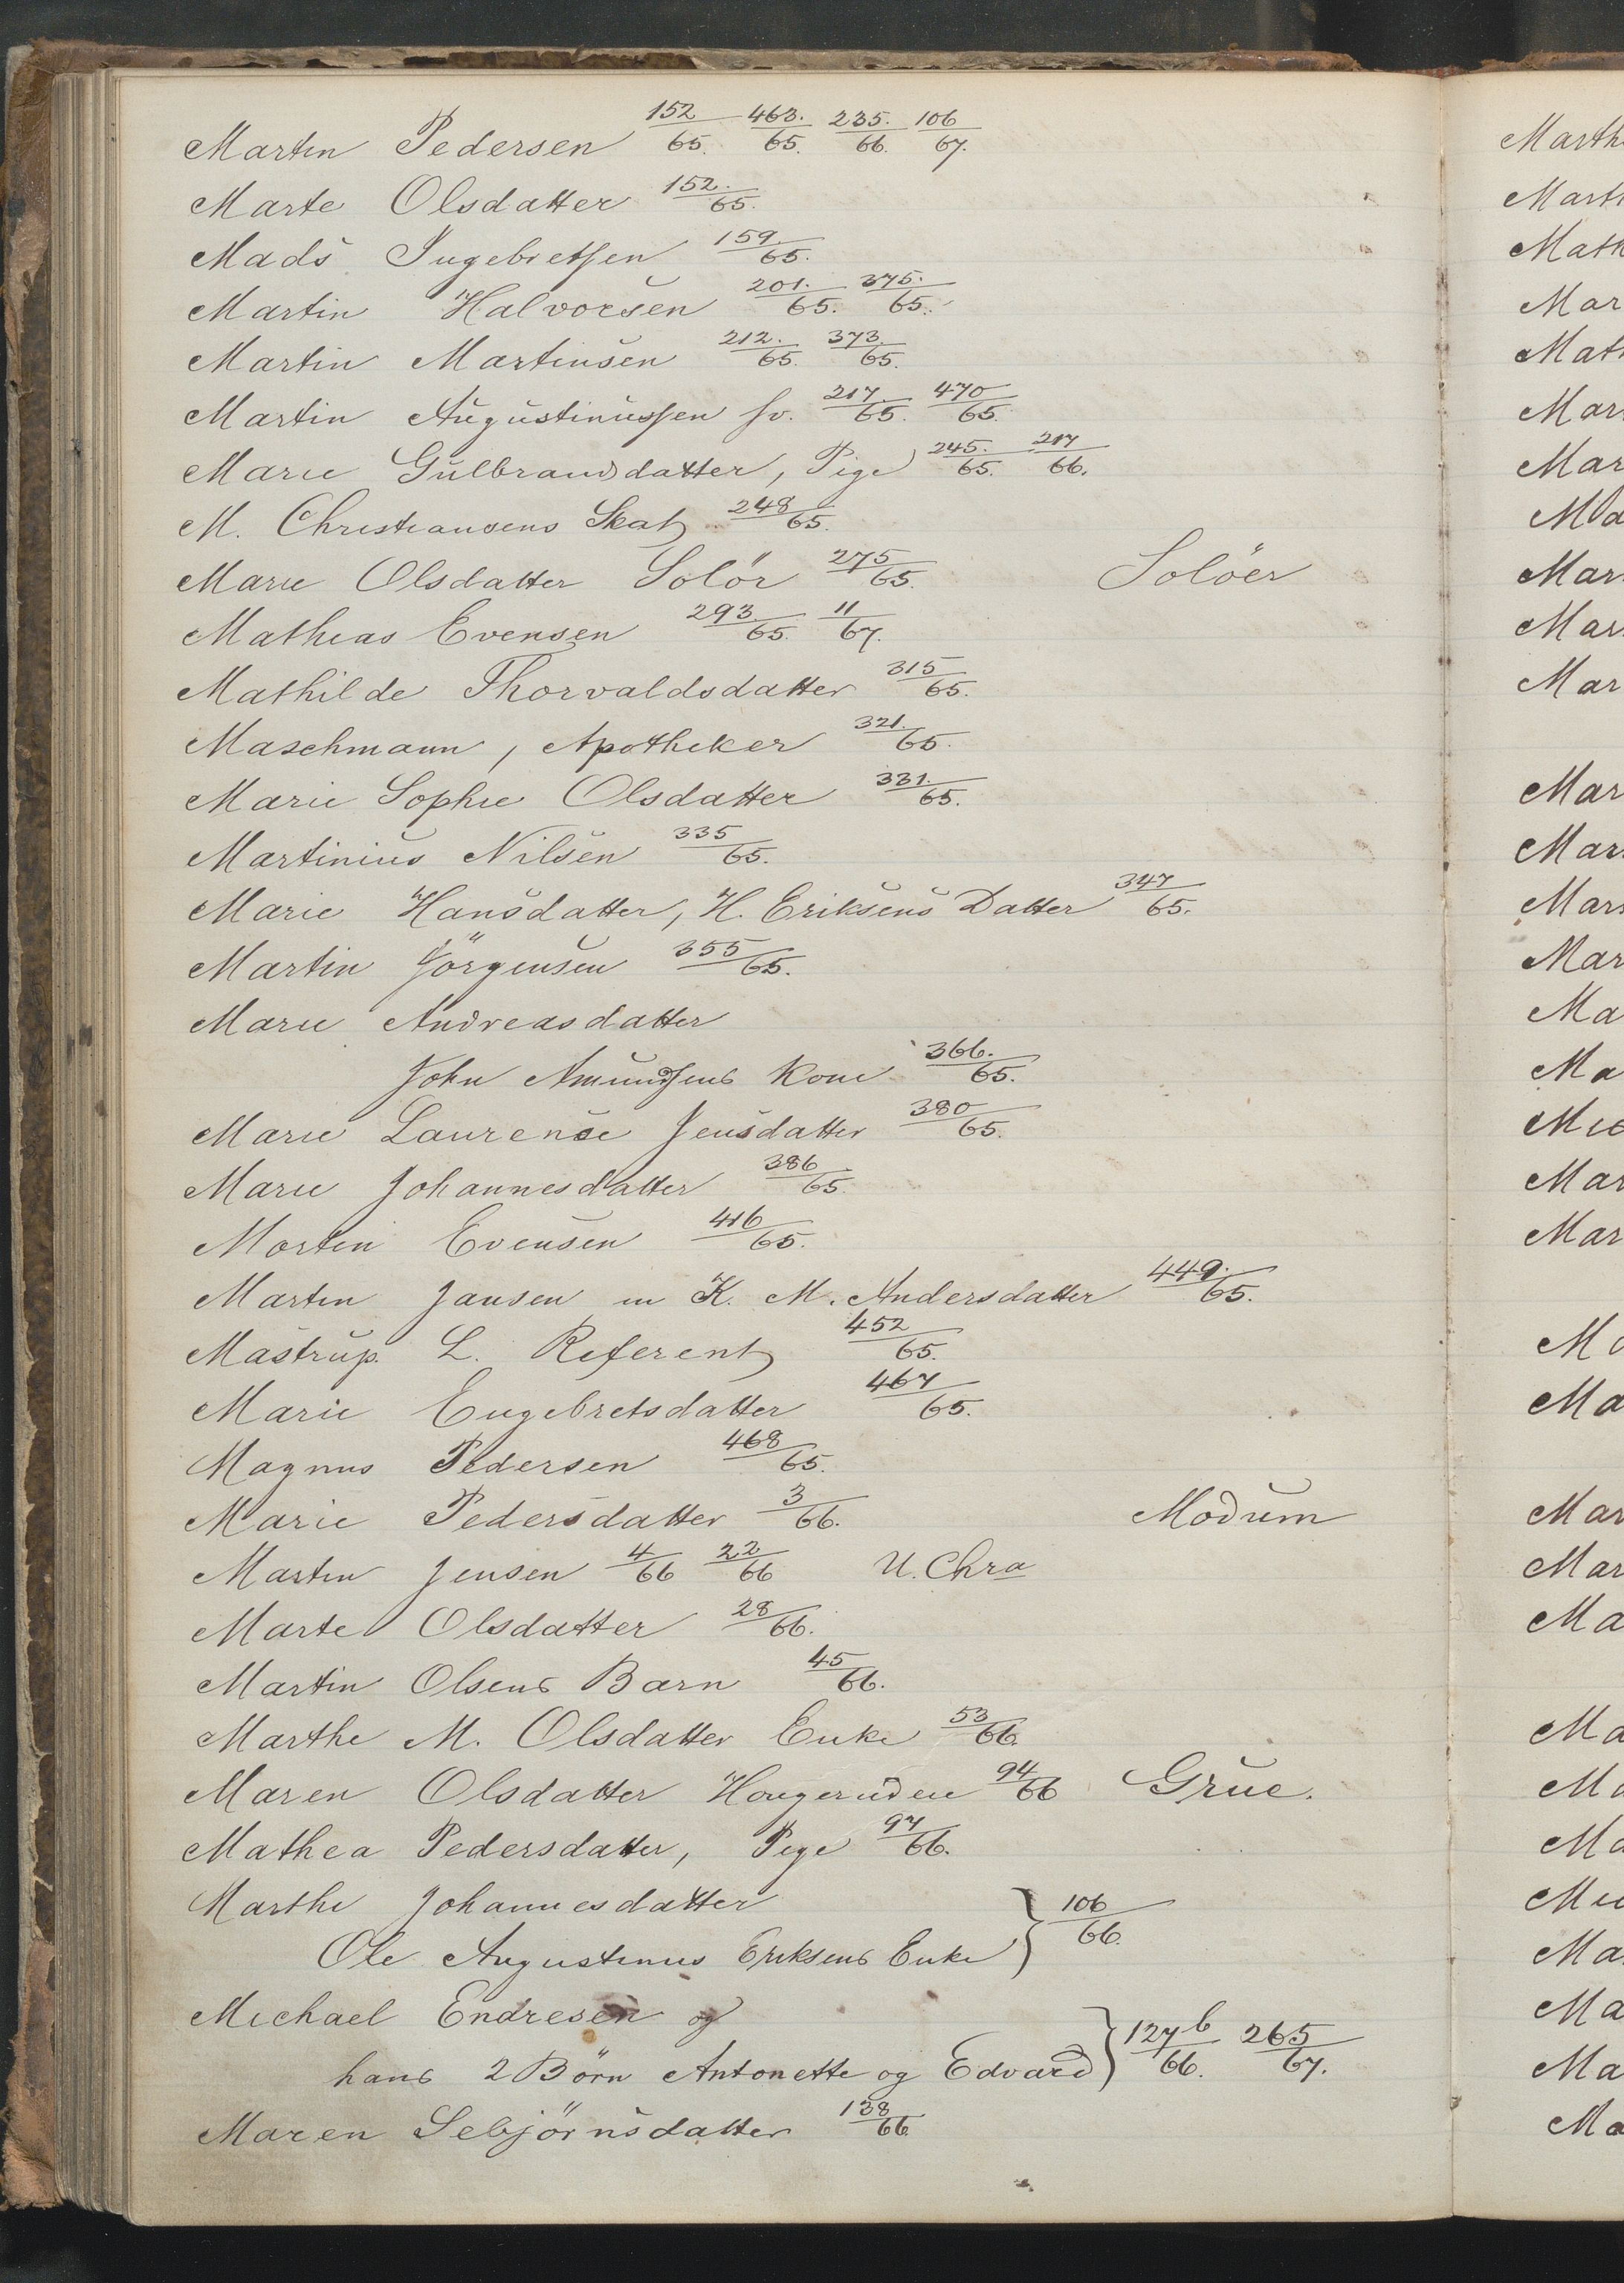 Martin Pedersen 152/65. 463./65. 235./66. 106/67.
Marte Olsdatter 152./65.
Mads Ingebretsen 159./65.
Martin Halvorsen 201./65. 375./65.
Martin Martinsen 212./65. 373./65.
Martin Augustinussen fv. 217./65. 470/65.
Marie Gulbrandsdatter, Pige 245./65. 217/66.
M. Christiansens Skat 248/65.
Marie Olsdatter Solör 275/65. Solöer
Mathias Evensen 293/65. 11/67.
Mathilde Thorvaldsdatter 315/65.
Maschmann, Apotheker 321./65.
Marie Sophie Olsdatter 331./65.
Martinius Nilsen 335/65.
Marie Hansdatter, H. Eriksens Datter 347/65.
Martin Jörgensen 355/65.
Marie Andreasdatter
John Amundsens Kone 366./65.
Marie Laurense Jensdatter 380/65.
Marie Johannesdatter 386/65.
Morten Evensen 416/65.
Martin Jansen m K. M. Andersdatter 449./65.
Mastrup. L. Referent 452/65.
Marie Engebretsdatter 467/65.
Magnus Pedersen 468/65.
Marie Pedersdatter 3/66. Modum
Martin Jensen 4/66 22/66 U. Chra
Marte Olsdatter 28/66.
Martin Olsens Barn 45/66.
Marthe M. Olsdatter Enke 53/66
Maren Olsdatter Hougerudeie 94/66 Grue.
Mathea Pedersdatter, Pige 97/66.
Marthe Johannesdatter
Ole Augustinus Eriksens Enke } 106/66.
Michael Endresen og
hans 2 Börn Antonette og Edvard } 127b/66. 265/67.
Maren Sebjörnsdatter 138/66